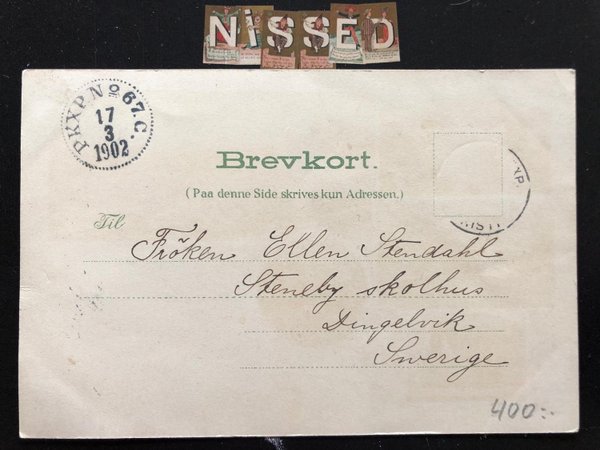 NiSSED
PKXP.No 67.C.
17
3
1902
Brevkort.
(Paa denne Side skrives kun Adressen.)
Til
Fröken Ellen Stendahl
Steneby skolhus
Dingelvik
Swerige
400:-